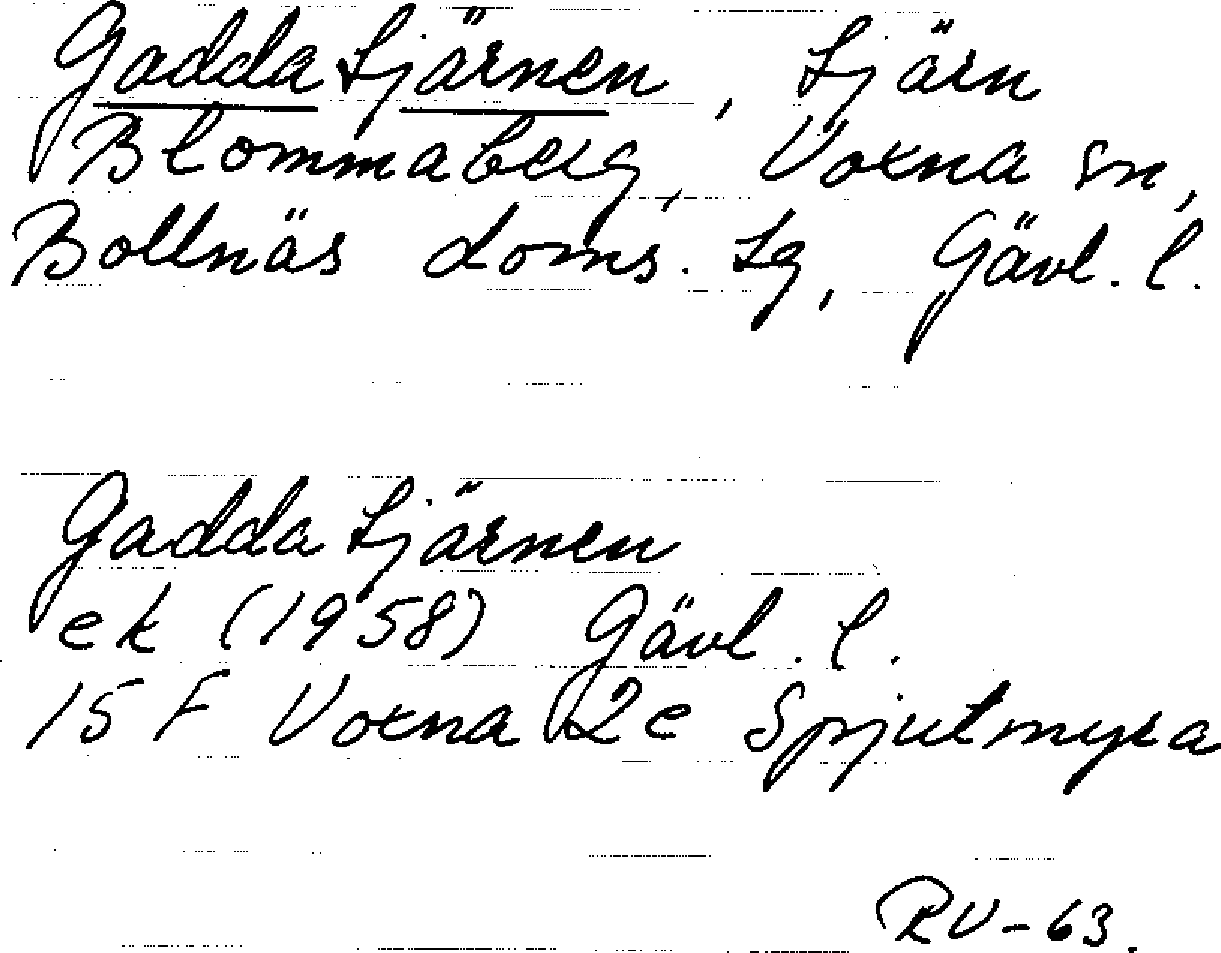 Gaddatjärnen, tjärn
Blommaberg, Voxna sn,
Bollnäs doms. tg, Gävl. l.
Gaddatjärnen
ek (1958) Gävl. l.
15 F Voxna 2e Spjutmyra
RV-63.